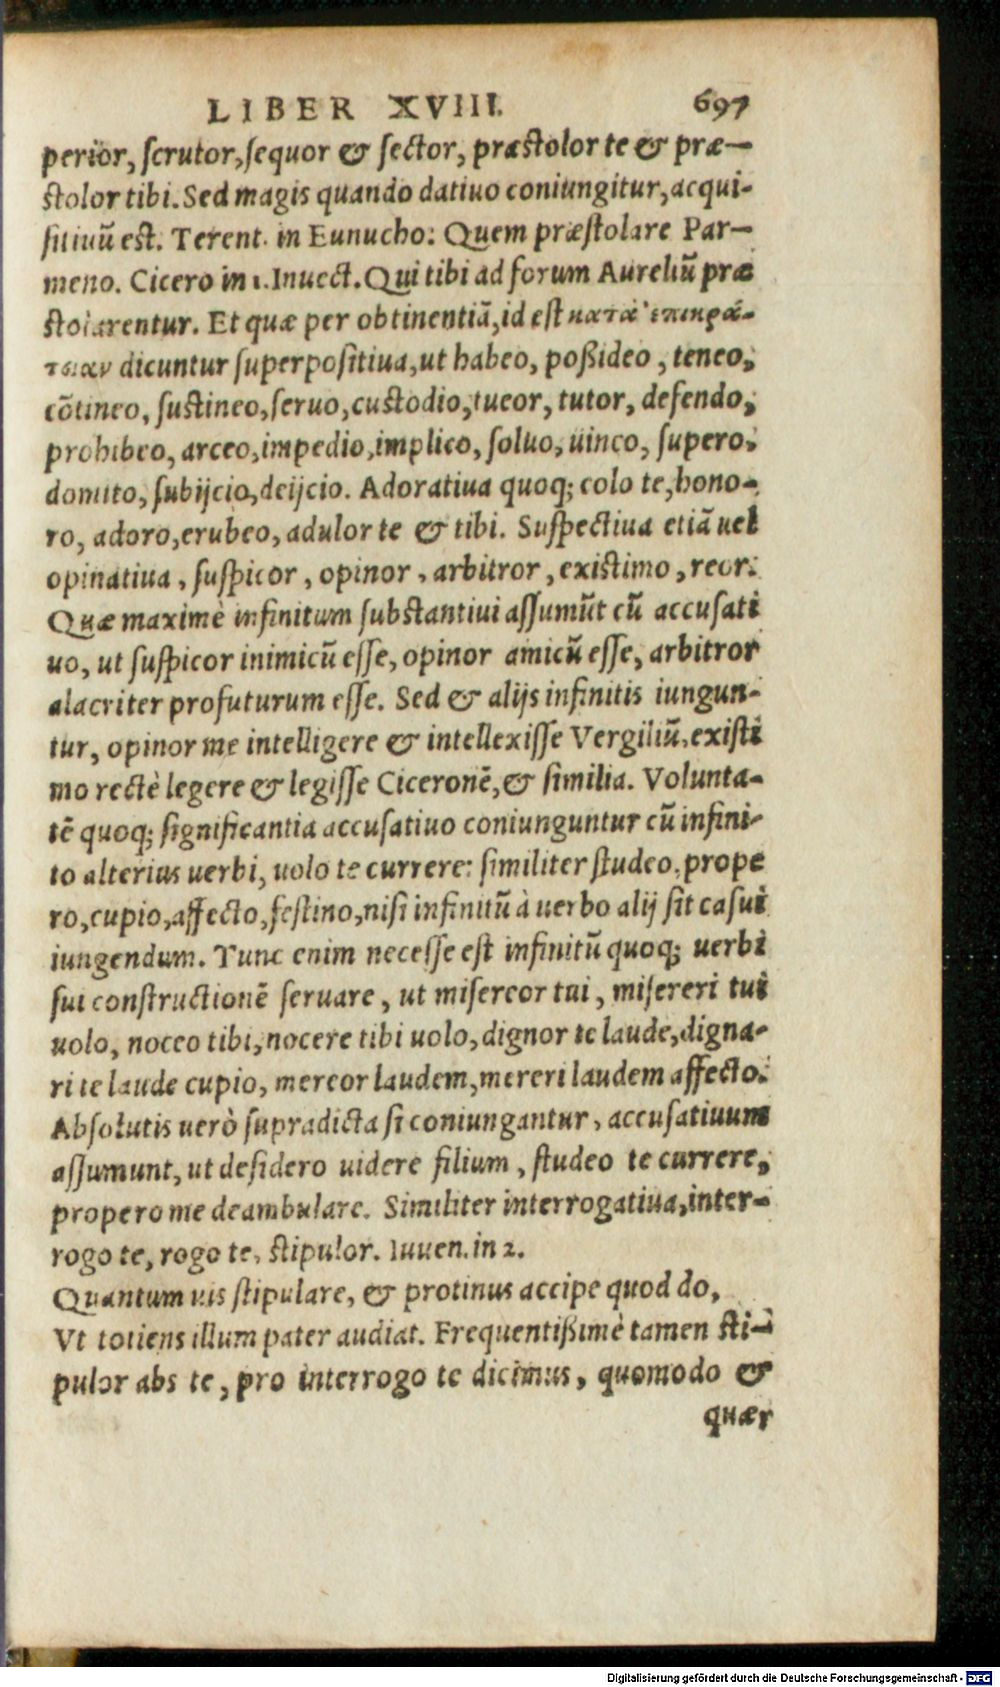 LIBER XVIII. 697
perior, scrutor, sequor & sector, præstolor te & præ-
stolor tibi. Sed magis quando datiuo coniungitur, acqui-
sitiuũ est. Terent. in Eunucho: Quem præstolare Par-
meno. Cicero in 1. Inuect. Qui tibi ad forum Aureliũ præ
stolarentur. Et quæ per obtinentiã, id est κατὰ ἐπικρά-
τειαν dicuntur superpositiua, ut habeo, poßideo, teneo,
cõtineo, sustineo, seruo, custodio, tueor, tutor, defendo,
prohibeo, arceo, impedio, implico, soluo, uinco, supero,
domito, subijcio, deijcio. Adoratiua quoq; colo te, hono-
ro, adoro, erubeo, adulor te & tibi. Suspectiua etiã uel
opinatiua, suspicor, opinor, arbitror, existimo, reor.
Quæ maximè infinitum substantiui assumũt cũ accusati
uo, ut suspicor inimicũ esse, opinor amicũ esse, arbitror
alacriter profuturum esse. Sed & alijs infinitis iungun-
tur, opinor me intelligere & intellexisse Vergiliũ, existi
mo rectè legere & legisse Ciceronẽ, & similia. Volunta-
tẽ quoq; significantia accusatiuo coniunguntur cũ infini-
to alterius uerbi, uolo te currere: similiter studeo, prope
ro, cupio, affecto, festino, nisi infinitũ à uerbo alij sit casui
iungendum. Tunc enim necesse est infinitũ quoq; uerbi
sui constructionẽ seruare, ut misereor tui, misereri tui
uolo, noceo tibi, nocere tibi uolo, dignor te laude, digna-
ri te laude cupio, mereor laudem, mereri laudem affecto.
Absolutis uerò supradicta si coniungantur, accusatiuum
assumunt, ut desidero uidere filium, studeo te currere,
propero me deambulare. Similiter interrogatiua, inter-
rogo te, rogo te, stipulor. Iuuen. in 2.
Quantum uis stipulare, & protinus accipe quod do,
Vt totiens illum pater audiat. Frequentißimè tamen sti-
pulor abs te, pro interrogo te dicimus, quomodo &
quær
Digitalisierung gefördert durch die Deutsche Forschungsgemeinschaft - DFG